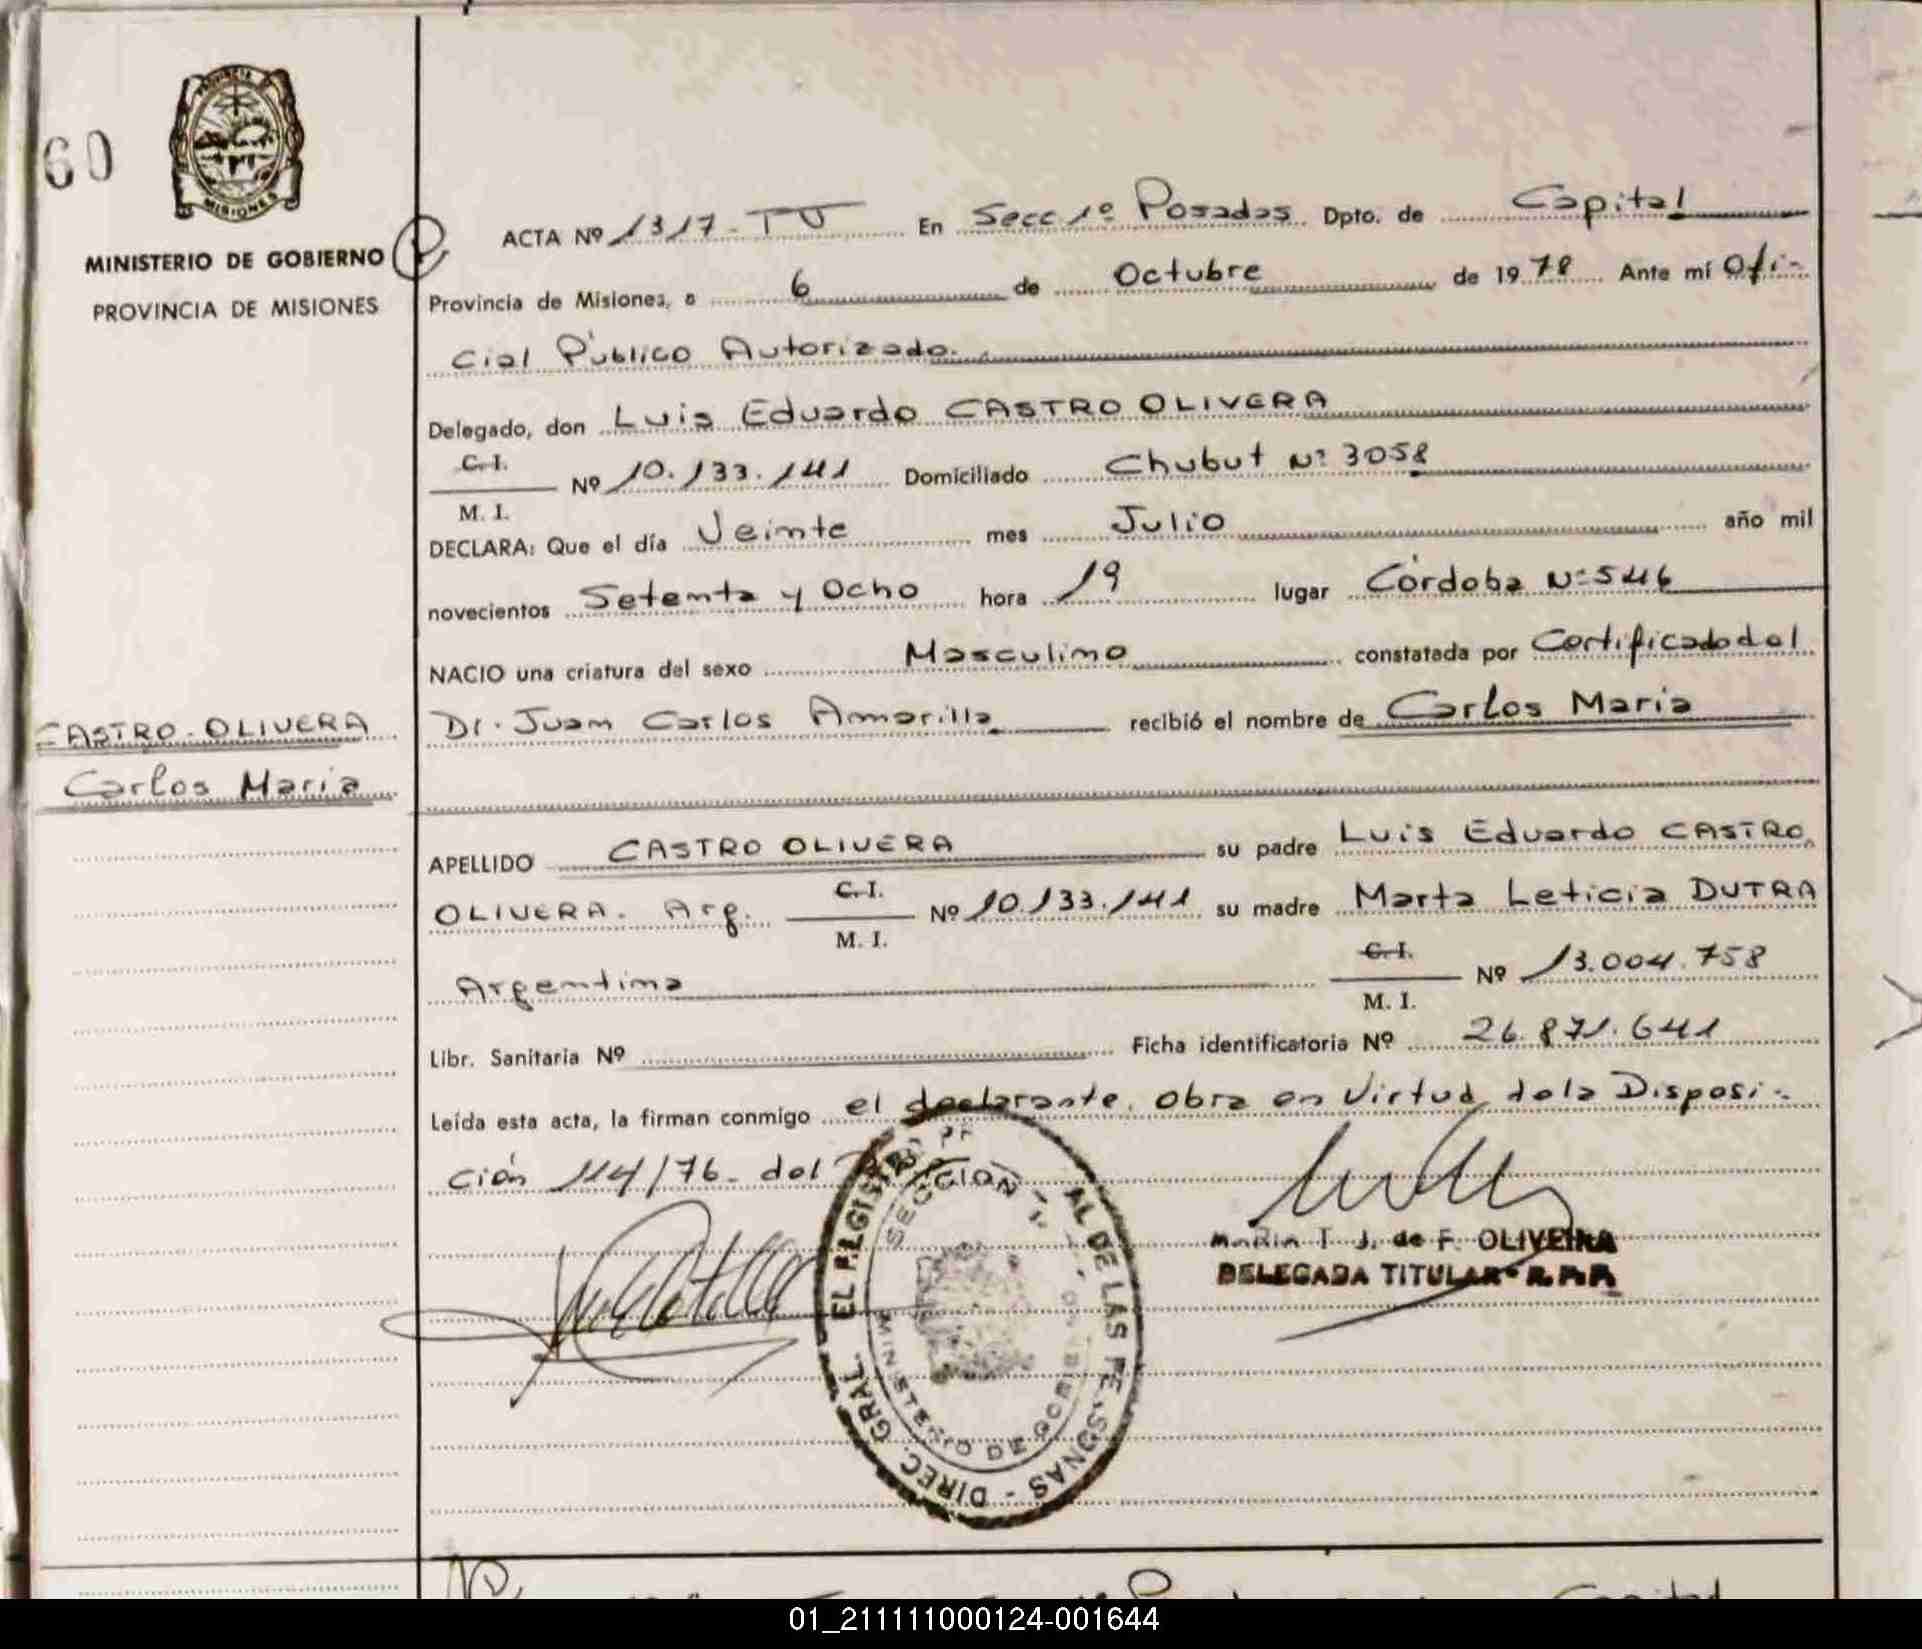 60
PROVINCIA DE
MISIONES
MINISTERIO DE GOBIERNO
PROVINCIA DE MISIONES
ACTA Nº 1317-TU En Secc 1º Posadas Dpto. de Capital
Provincia de Misiones, a 6 de Octubre de 1978 Ante mí Ofi-
cial Público Autorizado.
Delegado, don Luis Eduardo CASTRO OLIVERA
C. I.
Nº 10.133.141 Domiciliado Chubut Nº 3058
M. I.
DECLARA: Que el día Veinte mes Julio año mil
novecientos Setenta y Ocho hora 19 lugar Córdoba Nº 546
NACIO una criatura del sexo Masculino constatada por Certificado del
Dr. Juan Carlos Amarilla recibió el nombre de Carlos Maria
CASTRO-OLIVERA
Carlos Maria
APELLIDO CASTRO OLIVERA su padre Luis Eduardo CASTRO
C. I.
OLIVERA. Arg. Nº 10.133.141 su madre Marta Leticia DUTRA
M. I.
C. I.
Argentina Nº 13.004.758
M. I.
Libr. Sanitaria Nº Ficha identificatoria Nº 26.871.641
Leída esta acta, la firman conmigo el declarante. Obra en Virtud de la Disposi-
ción 114/76- del
DIREC. GRAL. DE LAS PERSONAS
SECCION
MINISTERIO DE GOBIERNO
MARIA T. J. de F. OLIVEIRA
DELEGADA TITULAR R.P.P.
01_211111000124-001644